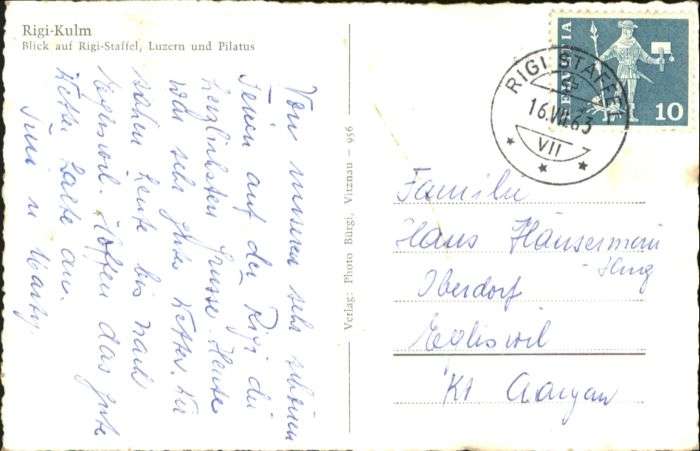 Rigi-Kulm
Blick auf Rigi-Staffel, Luzern und Pilatus
Von unseren sehr schönen
Ferien auf der Rigi die
herzlichsten Grüsse. Heute
war sehr gutes Wetter. Wir
sahen heute bis nach
Hoffen das gute
Wetter halte an.
u Marty.
Verlag: Photo Bürgi, Vitznau — 956
HELVETIA
10
RIGI STAFFEL
16.VII.63
VII
Familie
Hans Häusermann
Oberdorf
Egliswil
Kt Aargau